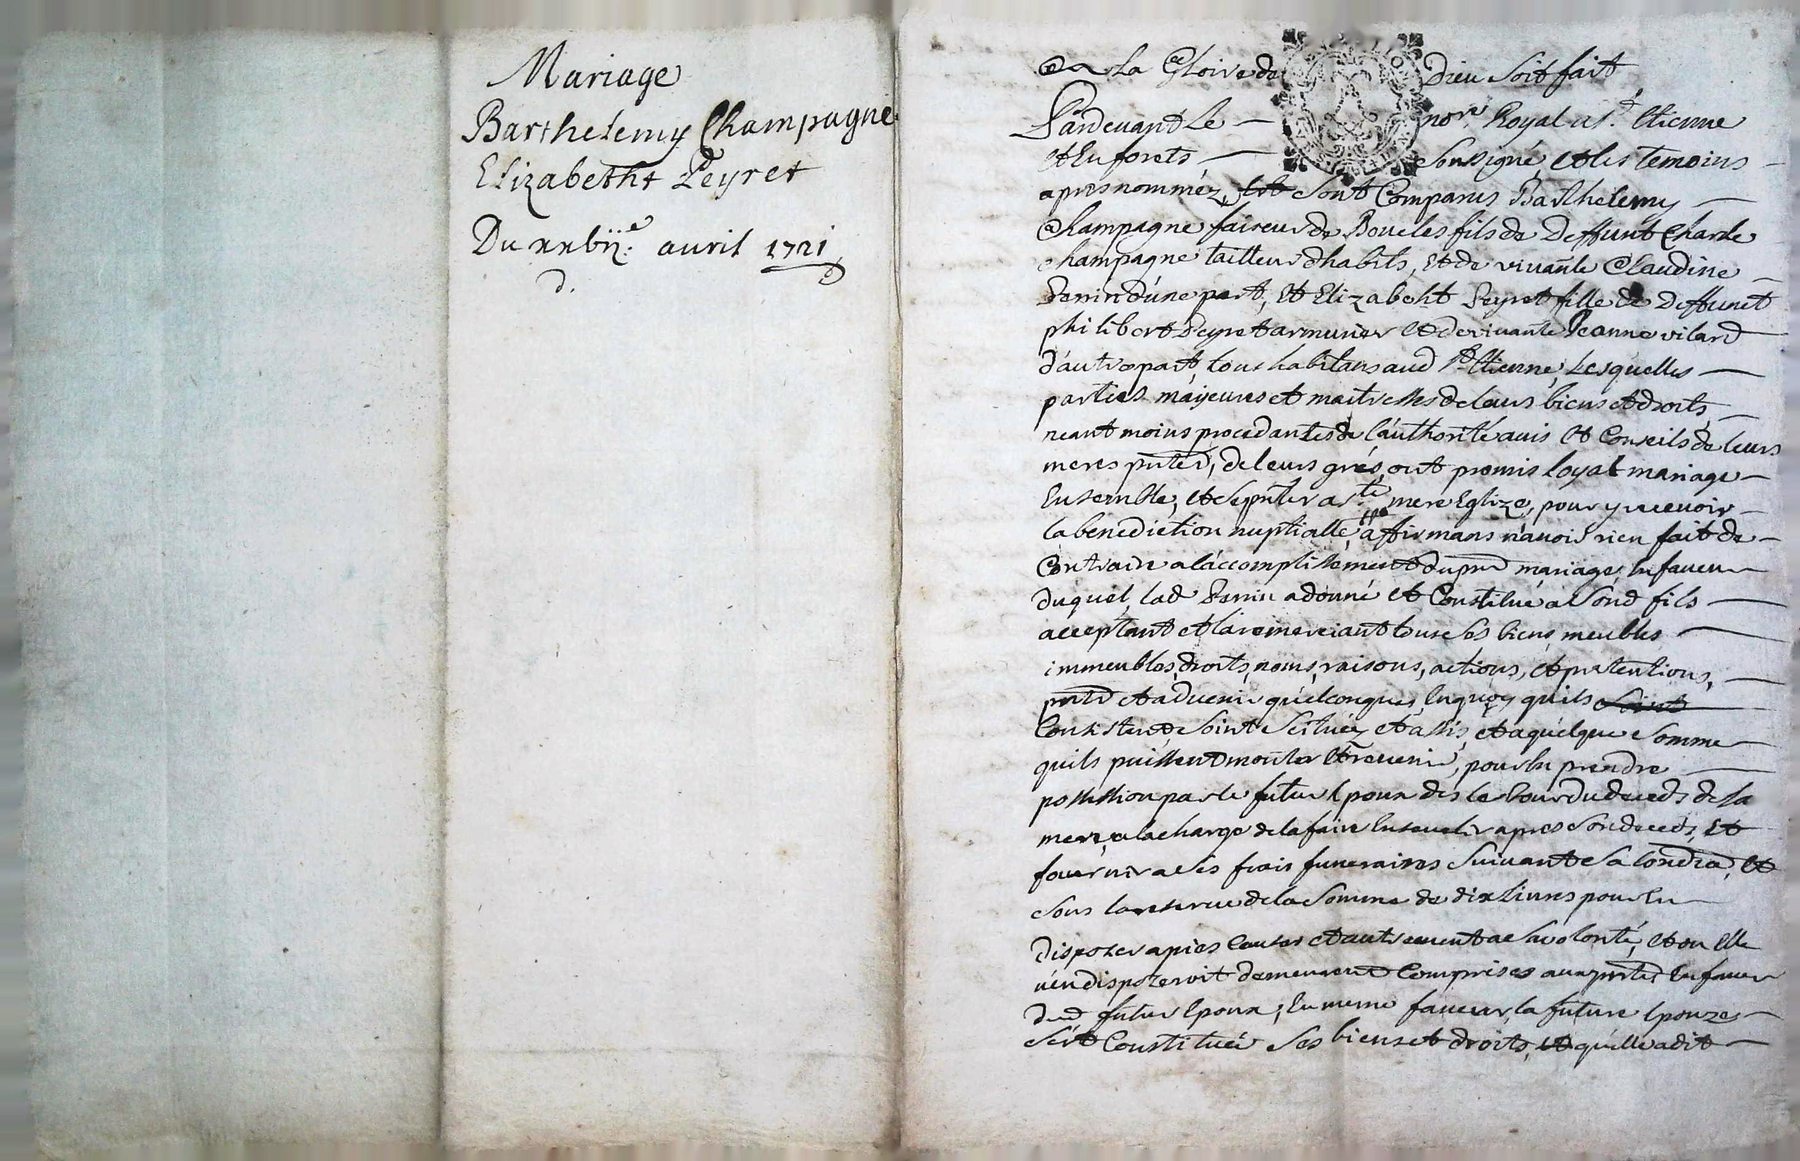 Mariage
Barthelemy Champagne
Elizabetht Peyret
Du xxbij.e avril 1721
d.
A La Gloire de Dieu soit fait
Pardevant Le nore. Royal a St. Etienne
et En forets soussigné, et les temoins
apres nomméz, sont Comparus Barthelemy
Champagne faiseur de Boucles fils de Deffunt Charle
champagne tailleur d'habits, et de vivante Claudine
Perrin d'une part, Et Elizabeht Peyret fille de Deffunct
philibert Peyret armurier et de vivante Jeanne vilard
d'autre part, tous habitans aud St. Etienne, Lesquelles
parties mayeures et maitresses de leurs biens et droits,
neant moins procedantes de l'authorité avis et Conseils de leurs
meres pntes, de leurs grés, ont promis loyal mariage
Ensemble, et se pnter a ste mere Eglize, pour y recevoir
la benediction nuptialle, affirmans n'avoir rien fait de
Contraire a l'accomplissement du pnt mariage, En faveur
duquel, lad Perrin a donné et Constitué a sond fils
acceptant et la remerciant tous ses biens meubles
immeubles, droits, noms, raisons, actions, et pretentions,
pnts et advenir quelconques, En quoy quils
Consistent soint scituéz et assis, et a quelque somme
quils puissent monter et revenir, pour En prendre
possession par le futur Epoux des le Jour du deceds de sa
mere, a la charge de la faire Ensevelir apres son deceds, et
fournir a ses frais funeraires suivant sa Condion, et
sous la reserve de la somme de dix Livres pour En
disposer a pies Causes et autrement a sa volonté, et ou Elle
n'en disposeroit demeurent Comprises aux pntes En faveur
dud futur Epoux; En meme faveur, la future Epouze
s'est Constituée ses biens et droits, quelle a dit